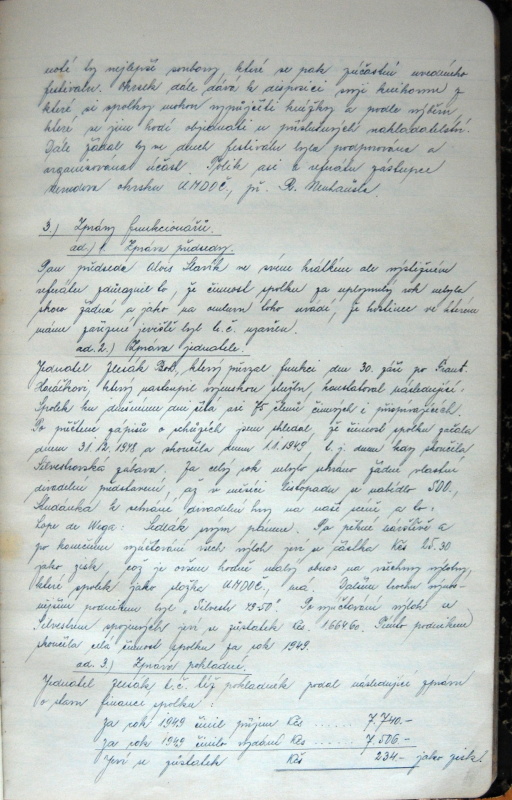 noté ty nejlepší soubory, které se pak zúčastní uvedeného
festivalu. Okrsek dále dává k disposici svoji knihovnu z
které si spolky mohou vypůjčiti knížky a podle výběru,
které se jim hodí objednati u příslušných nakladatelství.
Dále žádal by se duch festivalu byla podporována a
organisována účast. Tolik asi z referátu zástupce
okrsku ÚMDOČ, př. B. Neuhäusla.
3.) Zprávy funkcionářů.
ad. 1. Zpráva předsedy.
Pan předseda Alois Slavík ve svém krátkém ale výstižném
referátu zdůraznil to, že činnost spolku za uplynulý rok nebyla
skoro žádná a jako na omluvu toho uvádí, že hostinec ve kterém
máme zařízené jeviště byl t. č. uzavřen.
ad. 2.) Zpráva jednatele.
Jednatel Zlesák Boh., který převzal funkci dne 30. září po Frant.
Horáčkovi, který nastoupil vojenskou službu, konstatoval následující:
Spolek ku dnešnímu dni čítá asi 75 členů činných i přispívajících.
Po přečtení zápisů o schůzích jsem shledal, že činnost spolku začala
dnem 31. 12. 1948 a skončila dnem 1. 1. 1949, t. j. dnem kdy skončila
Silvestrovská zábava. Za celý rok nebylo sehráno žádné vlastní
divadelní představení, až v měsíci listopadu se nabídlo SDO.,
Studánka k sehrání divadelní hry na naší scéně a to:
Lope de Wega: Sedlák svým pánem. Po pěkné návštěvě a
po konečném vyúčtování všech výloh jeví se částka Kčs 25.30
jako zisk, což je ovšem hodně malý obnos na všechny výlohy,
které spolek jako složka ÚMDOČ, má. Dalším trochu výnos-
nějším podnikem byl „Silvestr 49-50“. Po vyúčtování výloh se
Silvestrem spojených jeví se zůstatek Kčs 1664.60. Tímto podnikem
skončila celá činnost spolku za rok 1949.
ad. 3.) Zpráva pokladní.
Jednatel Zlesák t. č. též pokladník podal následující zprávu
o stavu finance spolku:
Za rok 1949 činil příjem Kčs ...... 7.740.-
Za rok 1949 činilo vydání Kčs ...... 7.506.-
Jeví se zůstatek Kčs 234.- jako zisk.